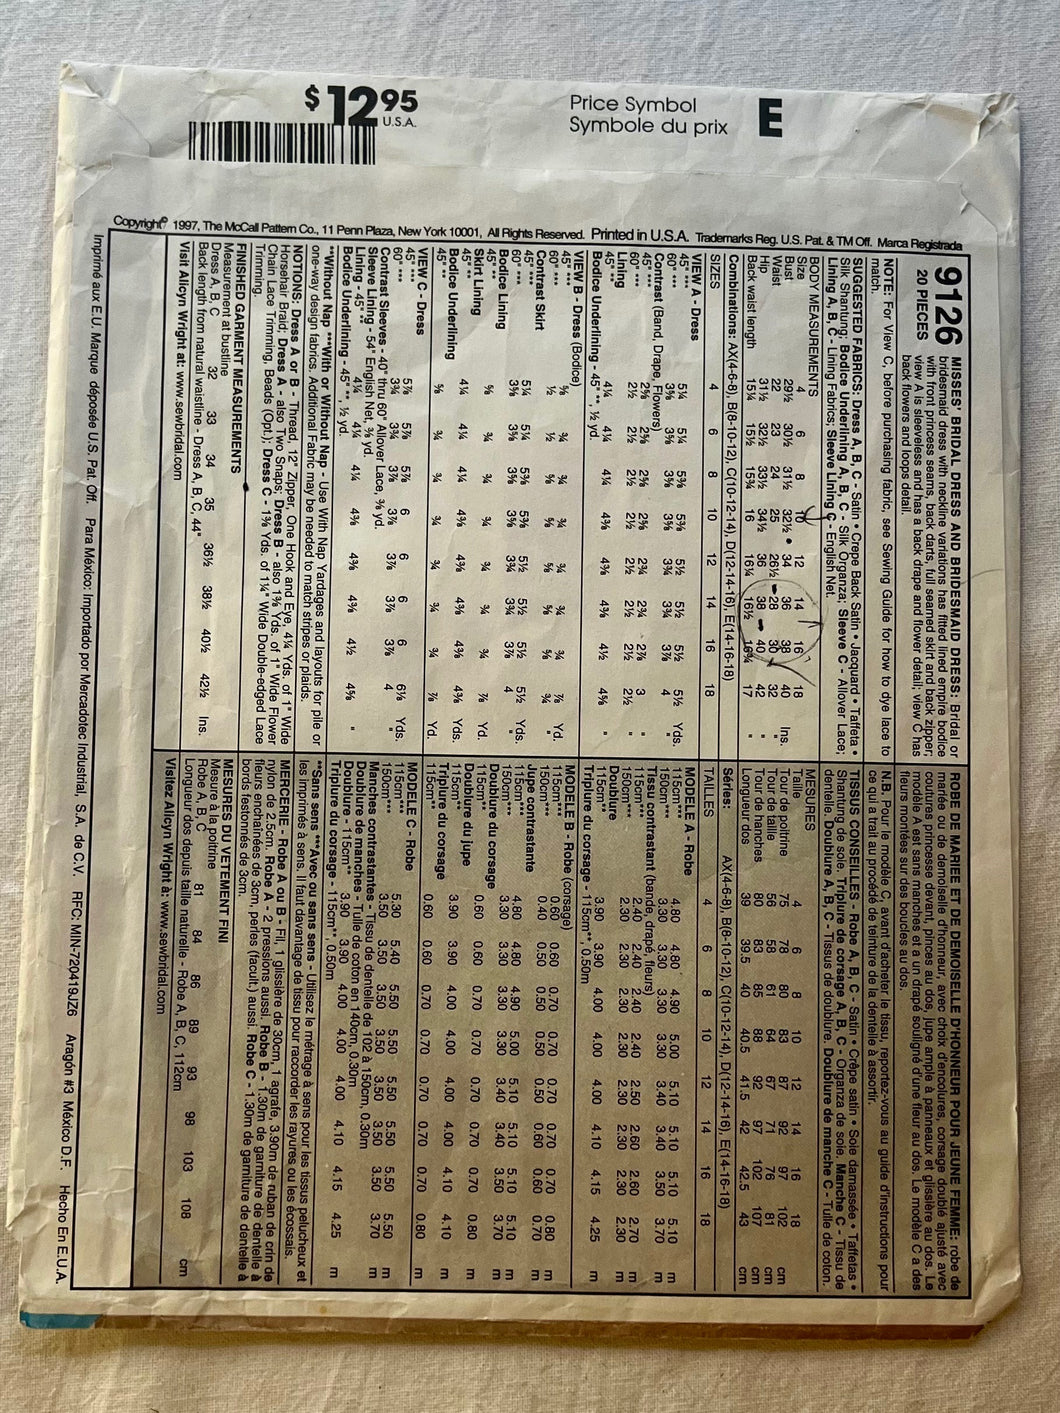 $12.95
U.S.A.
Price Symbol
Symbole du prix
E
Copyright© 1997, The McCall Pattern Co., 11 Penn Plaza, New York 10001, All Rights Reserved. Printed in U.S.A. Trademarks Reg. U.S. Pat. & TM Off. Marca Registrada
9126
20 PIECES
MISSES' BRIDAL DRESS AND BRIDESMAID DRESS: Bridal or
bridesmaid dress with neckline variations has fitted lined empire bodice
with front princess seams, back darts, full seamed skirt and back zipper;
view A is sleeveless and has a back drape and flower detail; view C has
back flowers and loops detail
NOTE: For View C, before purchasing fabric, see Sewing Guide for how to dye lace to
match.
SUGGESTED FABRICS: Dress A, B, C - Satin • Crepe Back Satin • Jacquard • Taffeta •
Silk Shantung; Bodice Underlining A, B, C - Silk Organza; Sleeve C - Allover Lace;
Lining A, B, C - Lining Fabrics; Sleeve Lining C - English Net.
BODY MEASUREMENTS
Size 4 6 8 10 12 14 16 18
Bust 29½ 30½ 31½ 32½ 34 36 38 40 Ins.
Waist 22 23 24 25 26½ 28 30 32 "
Hip 31½ 32½ 33½ 34½ 36 38 40 42 "
Back waist length 15¼ 15½ 15¾ 16 16¼ 16½ 16¾ 17 "
Combinations: AX(4-6-8), B(8-10-12), C(10-12-14), D(12-14-16), E(14-16-18)
SIZES 4 6 8 10 12 14 16 18
VIEW A - Dress
45" *** 5¼ 5¼ 5⅜ 5⅜ 5½ 5½ 5½ 5½ Yds.
60" *** 3⅝ 3⅝ 3⅝ 3⅝ 3¾ 3¾ 3⅞ 4 "
Contrast (Band, Drape, Flowers)
45" *** 2⅝ 2⅝ 2⅝ 2⅝ 2¾ 2¾ 2⅞ 3 "
60" *** 2½ 2½ 2½ 2½ 2½ 2½ 2½ 2½ "
Lining
45" ** 4¼ 4¼ 4¼ 4⅜ 4⅜ 4⅜ 4½ 4⅝ "
Bodice Underlining - 45" **, ½ yd.
VIEW B - Dress (Bodice)
45" *** ⅝ ¾ ¾ ¾ ¾ ¾ ¾ ⅞ Yd.
60" *** ½ ½ ⅝ ⅝ ⅝ ⅝ ⅝ ¾ "
Contrast Skirt
45" *** 5¼ 5¼ 5⅜ 5⅜ 5½ 5½ 5½ 5½ Yds.
60" *** 3⅝ 3⅝ 3⅝ 3⅝ 3¾ 3¾ 3⅞ 4 "
Bodice Lining
45" ** ⅝ ¾ ¾ ¾ ¾ ¾ ¾ ⅞ Yd.
Skirt Lining
45" ** 4¼ 4¼ 4¼ 4⅜ 4⅜ 4⅜ 4⅜ 4⅜ Yds.
Bodice Underlining
45" ** ⅝ ¾ ¾ ¾ ¾ ¾ ¾ ⅞ Yd.
VIEW C - Dress
45" *** 5⅞ 5⅞ 5⅞ 6 6 6 6 6⅛ Yds.
60" *** 3¾ 3¾ 3⅞ 3⅞ 3⅞ 3⅞ 3⅞ 4 "
Contrast Sleeves - 40" thru 60" Allover Lace, ⅜ yd.
Sleeve Lining - 54" English Net, ⅜ yd.
Lining - 45" ** 4¼ 4¼ 4¼ 4⅜ 4⅜ 4⅜ 4½ 4⅝ "
Bodice Underlining - 45" **, ½ yd.
**Without Nap ***With or Without Nap - Use With Nap Yardages and layouts for pile or
one-way design fabrics. Additional Fabric may be needed to match stripes or plaids.
NOTIONS: Dress A or B - Thread, 12" Zipper, One Hook and Eye, 4¼ Yds. of 1" Wide
Horsehair Braid; Dress A - also Two Snaps; Dress B - also 1⅜ Yds. of 1" Wide Flower
Chain Lace Trimming, Beads (Opt.); Dress C - 1⅜ Yds. of 1¼" Wide Double-edged Lace
Trimming.
FINISHED GARMENT MEASUREMENTS
Measurement at bustline
Dress A, B, C 32 33 34 35 36½ 38½ 40½ 42½ Ins.
Back length from natural waistline - Dress A, B, C, 44"
Visit Alicyn Wright at: www.sewbridal.com
ROBE DE MARIEE ET DE DEMOISELLE D'HONNEUR POUR JEUNE FEMME: robe de
mariée ou de demoiselle d'honneur, avec choix d'encolures, corsage doublé ajusté avec
coutures princesse devant, pinces au dos, jupe ample à panneaux et glissière au dos. Le
modèle A est sans manches et a un drapé souligné d'une fleur au dos. Le modèle C a des
fleurs montées sur des boucles au dos.
N.B. Pour le modèle C, avant d'acheter le tissu, reportez-vous au guide d'instructions pour
ce qui a trait au procédé de teinture de la dentelle à assortir.
TISSUS CONSEILLES - Robe A, B, C - Satin • Crêpe satin • Soie damassée • Taffetas •
Shantung de soie. Triplure de corsage A, B, C - Organza de soie. Manche C - Tissu de
dentelle. Doublure A, B, C - Tissus de doublure. Doublure de manche C - Tulle de coton.
MESURES
Taille 4 6 8 10 12 14 16 18
Tour de poitrine 75 78 80 83 87 92 97 102 cm
Tour de taille 56 58 61 64 67 71 76 81 cm
Tour de hanches 80 83 85 88 92 97 102 107 cm
Longueur dos 39 39.5 40 40.5 41.5 42 42.5 43 cm
Séries: AX(4-6-8), B(8-10-12), C(10-12-14), D(12-14-16), E(14-16-18)
TAILLES 4 6 8 10 12 14 16 18
MODELE A - Robe
115cm*** 4.80 4.80 4.90 5.00 5.10 5.10 5.10 5.10 m
150cm*** 3.30 3.30 3.30 3.30 3.40 3.40 3.50 3.70 m
Tissu contrastant (bande, drapé, fleurs)
115cm*** 2.40 2.40 2.40 2.40 2.50 2.60 2.60 2.70 m
150cm*** 2.30 2.30 2.30 2.30 2.30 2.30 2.30 2.30 m
Doublure
115cm** 3.90 3.90 4.00 4.00 4.00 4.10 4.15 4.25 m
Triplure du corsage - 115cm**, 0.50m
MODELE B - Robe (corsage)
115cm*** 0.60 0.60 0.70 0.70 0.70 0.70 0.70 0.80 m
150cm*** 0.40 0.50 0.50 0.50 0.50 0.60 0.60 0.70 m
Jupe contrastante
115cm*** 4.80 4.80 4.90 5.00 5.10 5.10 5.10 5.10 m
150cm*** 3.30 3.30 3.30 3.30 3.40 3.40 3.50 3.70 m
Doublure du corsage
115cm** 0.60 0.60 0.70 0.70 0.70 0.70 0.70 0.80 m
Doublure du jupe
115cm** 3.90 3.90 4.00 4.00 4.00 4.00 4.10 4.10 m
Triplure du corsage
115cm** 0.60 0.60 0.70 0.70 0.70 0.70 0.70 0.80 m
MODELE C - Robe
115cm*** 5.30 5.40 5.50 5.50 5.50 5.50 5.50 5.50 m
150cm*** 3.50 3.50 3.50 3.50 3.50 3.50 3.50 3.70 m
Manches contrastantes - Tissu de dentelle de 102 à 150cm, 0.30m
Doublure de manches - Tulle de coton en 140cm, 0.30m
Doublure - 115cm** 3.90 3.90 4.00 4.00 4.00 4.10 4.15 4.25 m
Triplure du corsage - 115cm**, 0.50m
**Sans sens ***Avec ou sans sens - Utilisez le métrage à sens pour les tissus pelucheux et
les imprimés à sens. Il faut davantage de tissu pour raccorder les rayures ou les écossais.
MERCERIE - Robe A ou B - Fil, 1 glissière de 30cm, 1 agrafe, 3.90m de ruban de crin de
nylon de 2.5cm. Robe A - 2 pressions aussi. Robe B - 1.30m de garniture de dentelle à
fleurs enchaînées de 3cm, perles (facult.) aussi. Robe C - 1.30m de garniture de dentelle à
bords festonnés de 3cm.
MESURES DU VETEMENT FINI
Mesure à la poitrine
Robe A, B, C 81 84 86 89 93 98 103 108 cm
Longueur dos depuis taille naturelle - Robe A, B, C, 112cm
Visitez Alicyn Wright à: www.sewbridal.com
Imprimé aux E.U. Marque déposée U.S. Pat. Off. Para México: Importado por Mercadotec Industrial, S.A. de C.V. RFC: MIN-720419JZ6 Aragón #3 México D.F. Hecho En E.U.A.